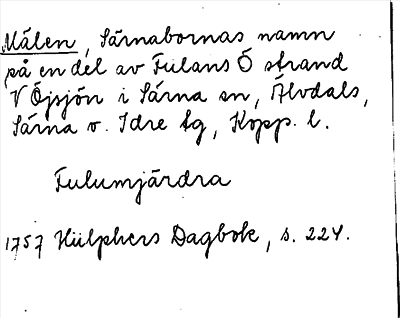 Målen, Särnabornas namn
på en del av Fulans Ö strand
V Öjsjön i Särna sn, Älvdals,
Särna o. Idre tg, Kopp. l.
Fulumjärdra
1757 Hülphers Dagbok, s. 224.